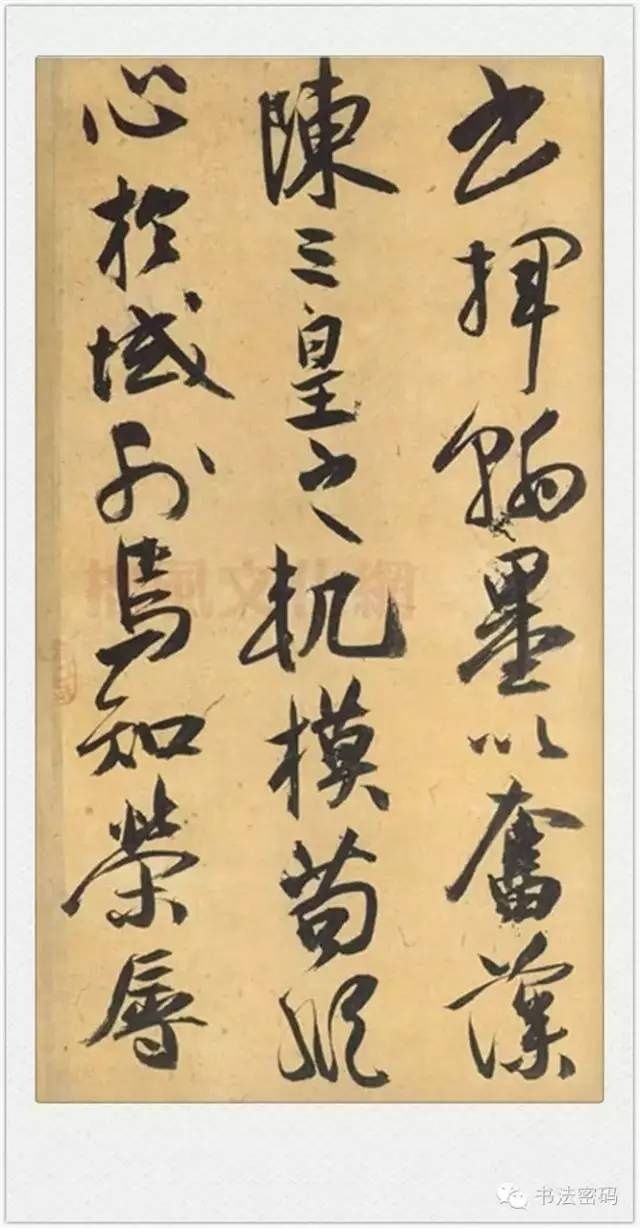 書揮翰墨以奮藻
陳三皇之軌模苟縱
心於域外焉知榮辱
书法密码